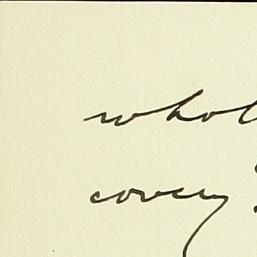 whol
covery